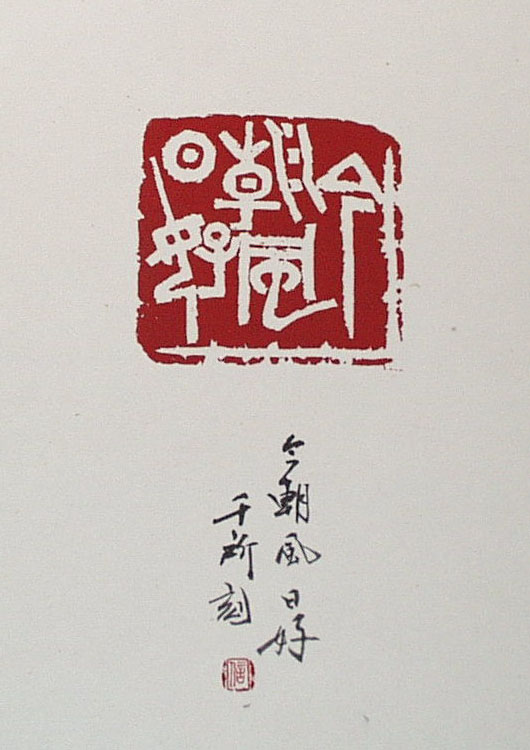 今朝風日好
今朝風日好
千所刻
信